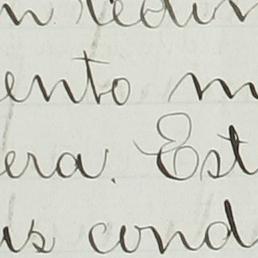 ento m
era. Est
is cond